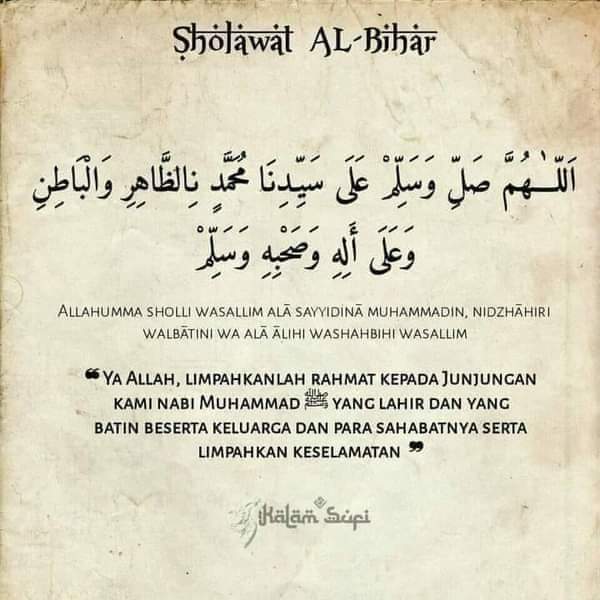 Sholawat AL-Bihar
اَللّٰهُمَّ صَلِّ وَسَلِّمْ عَلَى سَيِّدِنَا مُحَمَّدٍ نِالظَّاهِرِ وَالْبَاطِنِ
وَعَلَى أَلِهِ وَصَحْبِهِ وَسَلِّمْ
ALLAHUMMA SHOLLI WASALLIM ALĀ SAYYIDINĀ MUHAMMADIN, NIDZHĀHIRI
WALBĀTINI WA ALĀ ĀLIHI WASHAHBIHI WASALLIM
❝ YA ALLAH, LIMPAHKANLAH RAHMAT KEPADA JUNJUNGAN
KAMI NABI MUHAMMAD ﷺ YANG LAHIR DAN YANG
BATIN BESERTA KELUARGA DAN PARA SAHABATNYA SERTA
LIMPAHKAN KESELAMATAN ❞
Kalam Sufi